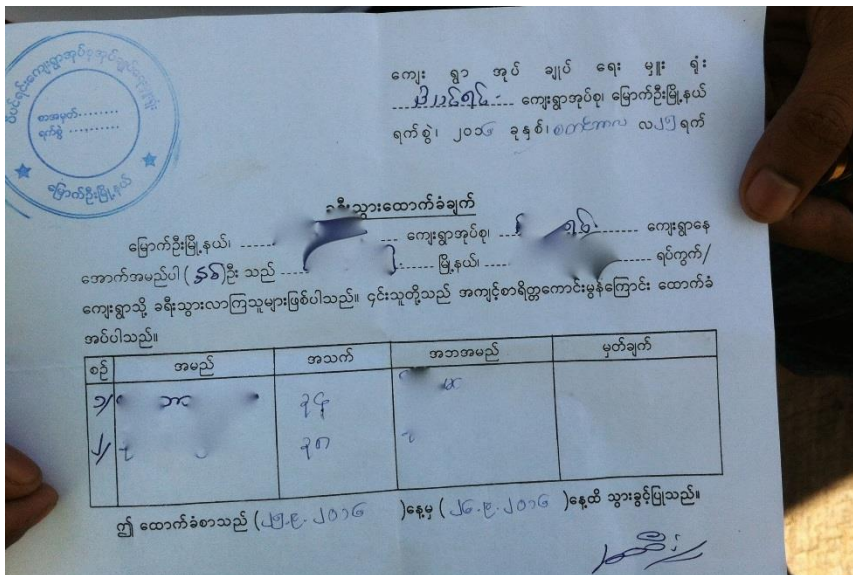 စာအမှတ်........
ရက်စွဲ ..........
မြောက်ဦးမြို့နယ်
ကျေး ရွာ အုပ် ချုပ် ရေး မှူး ရုံး
ပိပင်ရင်း ကျေးရွာအုပ်စု၊ မြောက်ဦးမြို့နယ်
ရက်စွဲ၊ ၂၀၁၆ ခုနှစ်၊ စက်တင်ဘာလ ၂၅ ရက်
ခရီးသွားထောက်ခံချက်
မြောက်ဦးမြို့နယ်၊ ...... ကျေးရွာအုပ်စု၊ ...... ကျေးရွာနေ
အောက်အမည်ပါ (နှစ်)ဦး သည် ...... မြို့နယ်၊ ...... ရပ်ကွက်/
ကျေးရွာသို့ ခရီးသွားလာကြသူများဖြစ်ပါသည်။ ၎င်းသူတို့သည် အကျင့်စာရိတ္တကောင်းမွန်ကြောင်း ထောက်ခံ
အပ်ပါသည်။
စဉ် အမည် အသက် အဘအမည် မှတ်ချက်
၁/ ၃၄
၂/ ၃၈
ဤ ထောက်ခံစာသည် (၂၅.၉.၂၀၁၆ )နေ့မှ ( ၂၆.၉.၂၀၁၆ )နေ့ထိ သွားခွင့်ပြုသည်။